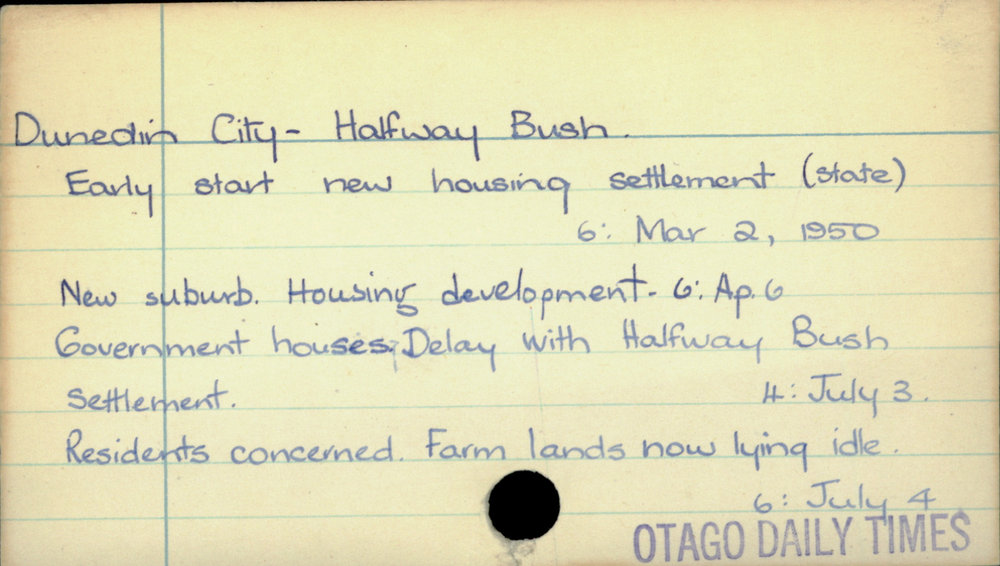 Dunedin City - Halfway Bush.
Early start new housing settlement (state)
6: Mar 2, 1950
New suburb. Housing development. 6: Ap. 6
Government houses; Delay with Halfway Bush
Settlement. 4: July 3.
Residents concerned. Farm lands now lying idle.
6: July 4
OTAGO DAILY TIMES